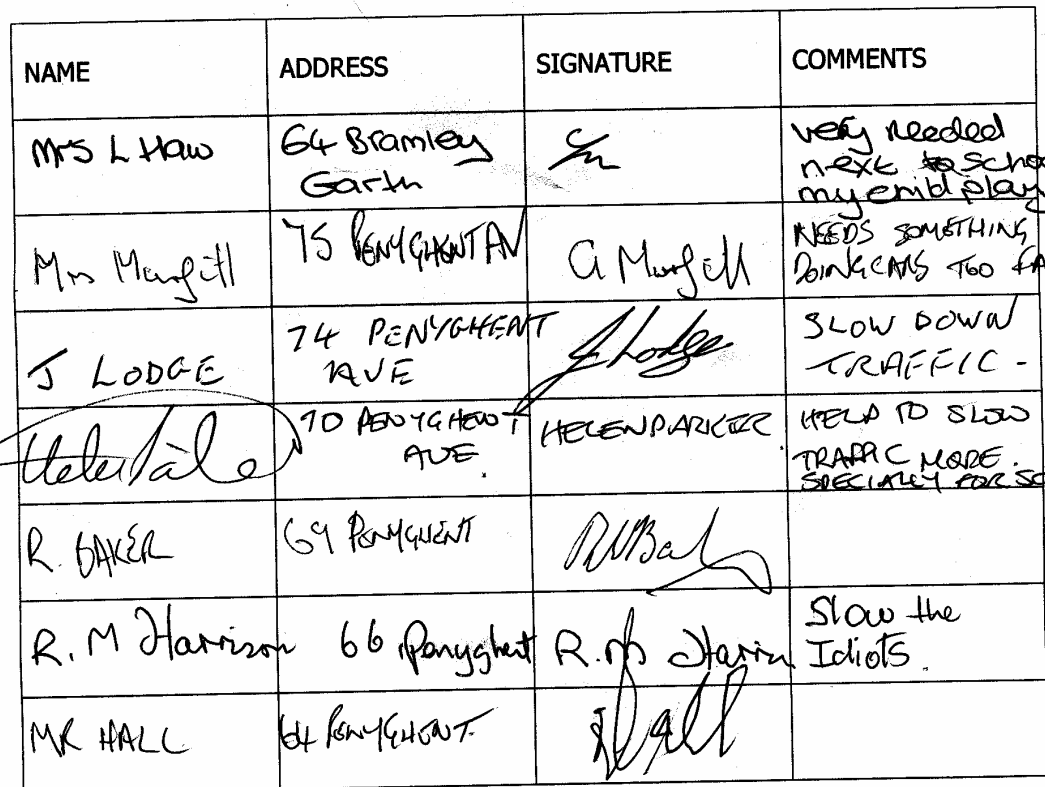 NAME ADDRESS SIGNATURE COMMENTS
Mrs L Haw 64 Bramley Garth very needed
next to scho
my child play
Mrs Murgitt 75 PENYGHENT AV A Murgitt NEEDS SOMETHING
DOING CARS TOO FA
J LODGE 74 PENYGHENT AVE J Lodge SLOW DOWN
TRAFFIC -
70 PENYGHENT AVE. HELEN PARKER HELP TO SLOW
TRAFFIC MORE.
SPECIALLY FOR SC
R. BAKER 69 PENYGHENT
R. M Harrison 66 Penyghent R. M Harris Slow the
Idiots.
MR HALL 64 PENYGHENT. Hall